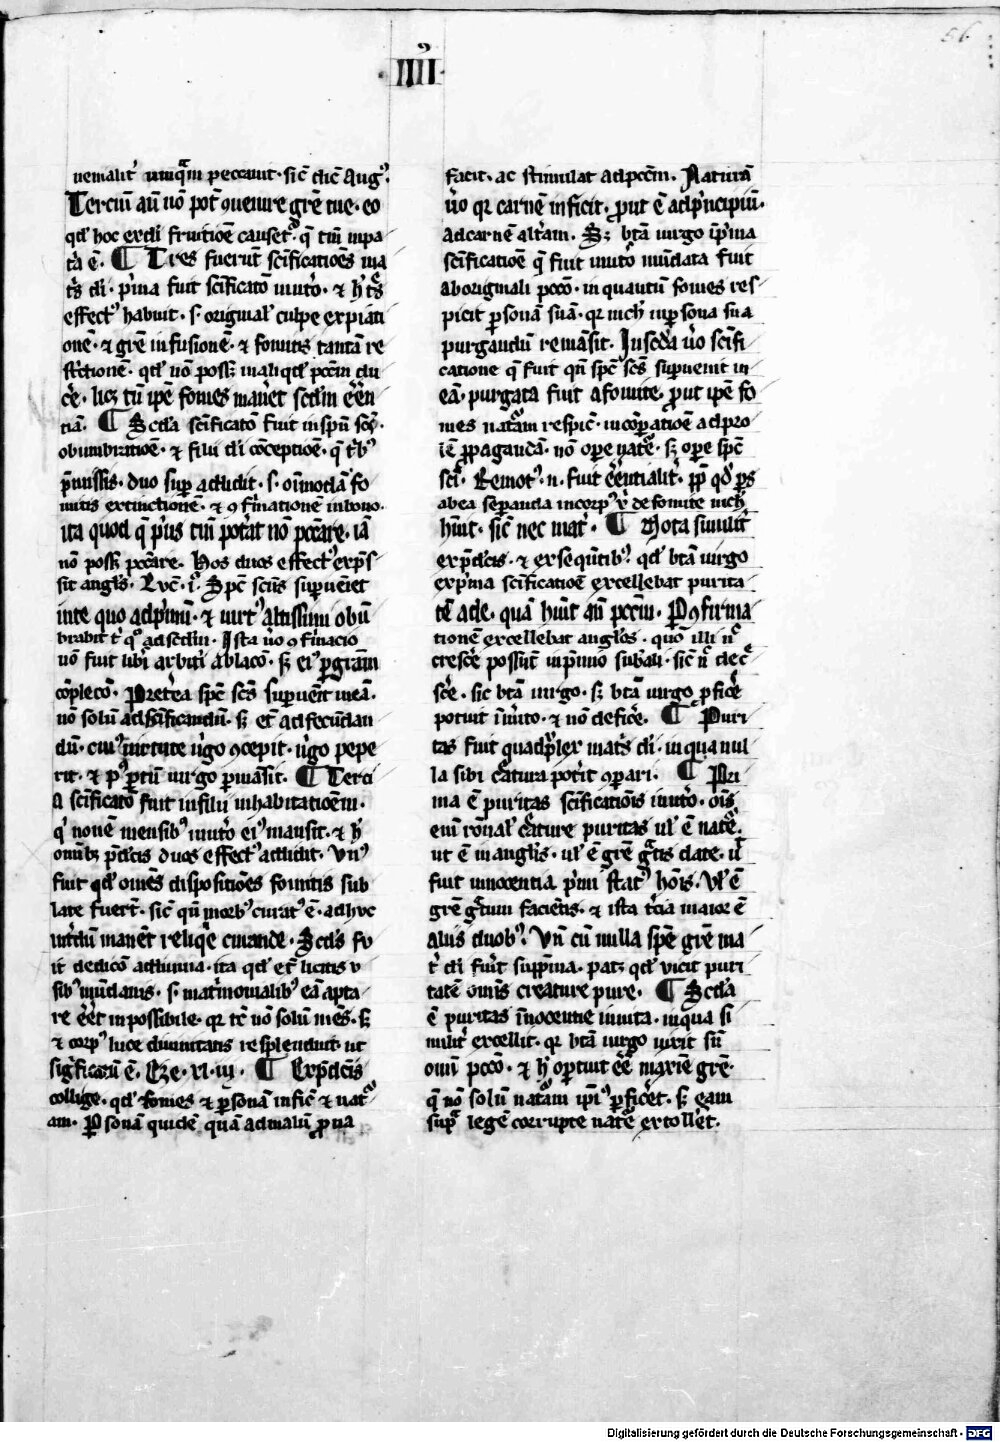 56
·IIII·
uenialit̾ unqᵃm peccauit · sic̄ dic̄ Augꝰ.
Terciū aū nō pōt ↄuenire gr̄e tue · eo
qd̾ hoc excl̄i fruitiōe causet̾ · q̄ tm̄ in pa
t̾a ē · ¶ Tres fuerūt scīficatiōes ma
tr̄s dī · p̾ma fuit scīficatō in utō · ⁊ h̾ tᵉs
effectꝰ habuit · s · originał culpe expiati
onē · ⁊ gr̄e infusionē · ⁊ fomitis tantā re
st̾ctionē · qd̾ nō possꝫ in aliqd̾ pccm̄ du
c̾e · licꝫ tn̄ ip̄e fomes man̾et scdm̄ ēēn
tiā · ¶ Scd̾a scīficatō fuit in sp̄u scō
obumbratiōe · ⁊ filii dī cōceptiōe · q̄ t̾bꝰ
p̄missis · duo suꝑ addidit · s · oīmodā fo
mitis extinctionē · ⁊ ↄfirmationē in bono ·
ita quod q̄ p̾us tm̄ pot̾at nō pccāre · iā
nō possꝫ pccāre · Hos duos effectꝰ exp̄s
sit angl̄s · Luc̄ · i · Sp̄c scūs suꝑueniet
in te quo ad p̾mū · ⁊ uirtꝰ altissimi obū
brabit t̾ qᵒ ad scdm̄ · Ista ūo ↄfirmacio
nō fuit lib̾i arbit̾i ablacō · sꝫ eiꝰ ꝑ gr̄am
cōplecō · Pret̾ea sp̄c scs̄ suꝑuen̄it in eā ·
nō solū ad scīficandū · sꝫ et̄ ad fecūdan
dū · cuiꝰ uirtute ūgo ↄcepit · ūgo pepe
rit · ⁊ pꝰ ꝑtū uirgo ꝑmāsit · ¶ Terci
a scīficatō fuit in filii inhabitatiōem ·
qⁱ nouē mensibꝰ in utō eiꝰ mansit · ⁊ h̾
omībꝫ p̄dcīs duos effectꝰ addidit · Vnꝰ
fuit qd̾ omēs dispositiōes fomitis sub
late fuer̄t · sic̄ qn̄ morbꝰ curatꝰ ē · adhuc
int̾dū manēt reliqⁱe curande · Scd̾s fu
it dedicō ad diuina · ita qd̾ et̄ licitis u
sibꝰ mūdanis · s · mat̾monialibꝰ eā apta
re ēēt impossibile · qꝛ tc̄ nō solū mēs · sꝫ
⁊ corpꝰ luce diuinitatis resplenduit · ut
sig̾ficatū ē · Eze · xl · iij · ¶ Ex p̄dcīs
collige · qd̾ fomes ⁊ ꝑsonā infic̄ ⁊ natᵘ
am · Ꝑsonā quidē quā ad malū ꝓna
facit · ac stimulat ad pccm̄ · Naturā
ūo qꝛ carnē inficit · ꝓut ē ad p̾ncipiū ·
ad carnē alt̾am · Sꝫ btā uirgo ī p̾ma
scīficatiōe q̄ fuit in utō mūdata fuit
ab originali pccō · in quantū fomes res
picit ꝑsonā suā · qꝛ nich̾ in ꝑsona sua
purgandū remāsit · In scd̾a ūo scīfi
catione q̄ fuit qn̄ sp̄c scs̄ suꝑuenit in
eā · purgata fuit a fomite · ꝓut ip̄e fo
mes natᵘam respic̄ · in coꝑatiōe ad pro
lē ꝓpagandā · nō oꝑe nat̄e · sꝫ oꝑe sp̄c
scī · Remotꝰ · n · fuit ēēntialit̾ · ꝓp̄ qd̾ ꝑs
ab ea seꝑanda in corpꝰ x̄ de fomite nich̾
hūit · sic̄ nec mat̾ · ¶ Nota similit̾
ex p̄dcīs · ⁊ ex sequētibꝰ · qd̾ btā uirgo
ex p̾ma scīficatiōe excellebat purita
tē ade · quā hūit an̄ pccm̄ · Ꝑ ↄfirma
tionē excellebat anglōs · quō illi n̄
cresc̾e possūt in p̾mio sub̄ali · sic̄ n̄ dec̾
sc̾e · sic btā uirgo · sꝫ btā uirgo ꝓfic̾e
potuit ī utō · ⁊ nō defic̾e · ¶ Puri
tas fuit quadpler mat̾s dī · in qua nul
la sibi c̾atura pot̾it ↄꝑari · ¶ Pri
ma ē puritas scīficatiōis in utō · oīs
enī rōnał c̾ature puritas uł ē nat̄e ·
ut ē in angl̄is · uł ē gr̄e gᵃtis date · ut
fuit innocentia p̾mi statꝰ hoīs · Vł ē
gr̄e gᵃtum faciētis · ⁊ ista t̾cia maior ē
aliis duobꝰ · Vn̄ cū nulla spē gr̄e ma
t̾ dī fuit supp̄ma · patꝫ qd̾ uicit puri
tatē omīs creature pure · ¶ Scd̾a
ē puritas īnocentie in uita · in qua si
milit̾ excellit · qꝛ btā uirgo uixit sn̄
omī pccō · ⁊ h̾ oportuit ēē marie gr̄e ·
q̄ nō solū natᵘam ip̄iꝰ ꝑfic̾et · sꝫ eam
supᵃ legē corrupte nat̄e extoll̾et ·
Digitalisierung gefördert durch die Deutsche Forschungsgemeinschaft - DFG